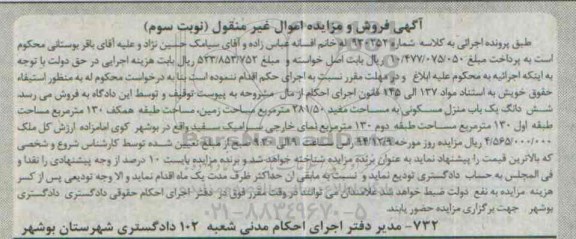 آگهی فروش و مزایده اموال غیر منقول (نوبت سوم)
طبق پرونده اجرائی به کلاسه شماره ۹۲۰۳۵۲ له خانم افسانه عباس زاده و آقای سیامک حسین نژاد و علیه آقای باقر بوستانی محکوم
است به پرداخت مبلغ ریال بابت اصل خواسته و مبلغ ۵۲۳/۸۵۳/۷۵۲ ریال بابت هزینه اجرایی در حق دولت با توجه
به اینکه اجرائیه به محکوم علیه ابلاغ و در مهلت مقرر نسبت به اجرای حکم اقدام ننموده است بنا به درخواست محکوم له به منظور استیفاء
حقوق خویش به استناد مواد ۱۳۷ الی ۱۴۵ قانون اجرای احکام از مال مشروحه به پیوست توقیف و توسط این دادگاه به فروش می رسد
شش دانگ یک باب منزل مسکونی به مساحت مفید ۳۸۱/۵۰ مترمربع مساحت زمین، مساحت طبقه همکف ۱۳۰ مترمربع مساحت
طبقه اول ۱۳۰ مترمربع مساحت طبقه دوم ۱۳۰ مترمربع نمای خارجی سرامیک سفید واقع در بوشهر کوی امامزاده ارزش کل ملک
۴/۵۶۵/۰۰۰/۰۰۰ ریال مزایده روز مورخه صبح از قیمت تعیین شده توسط کارشناس شروع و شخصی
که بالاترین قیمت را پیشنهاد نماید به عنوان برنده مزایده شناخته خواهد شد و برنده مزایده بایست ۱۰ درصد از وجه پیشنهادی را نقدا و
فی المجلس به حساب دادگستری تودیع نماید و نسبت به مابقی آن حداکثر ظرف مدت یک ماه اقدام نماید و الا وجه تودیعی پس از کسر
هزینه مزایده به نفع دولت ضبط خواهد شد علاقمندان می توانند در وقت مقرر فوق در دفتر اجرای احکام حقوقی دادگستری دادگستری
بوشهر جهت برگزاری مزایده حضور یابند.
۷۳۲- مدیر دفتر اجرای احکام مدنی شعبه ۱۰۲ دادگستری شهرستان بوشهر
۰۲۱-۸۸۳۴۹۶۷۰-۵